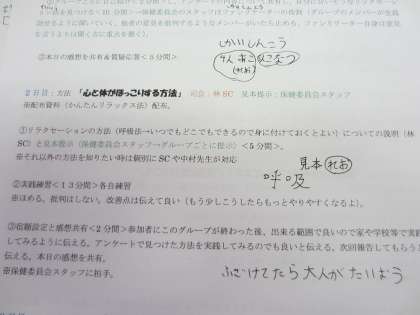 話させるように聞いていく。他者の意見を批判するようなメンバーがいたら止める。ファシリテーター自身は意見
③本日の感想を共有&質疑応答<5分間>
しかいしんこう
2日目:方法 「心と体がほっこりする方法」 司会:林SC 見本提示:保健委員会スタッフ
※配布資料(かんたんリラックス法)配布。
①リラクセーションの方法(呼吸法→いつでもどこでもできるので身に付けておくとよい)についての説明(林
SC)と見本提示(保健委員会スタッフ→グループごとに提示)<5分間>。
※それ以外の方法を知りたい時は個別にSCや中村先生が対応
見本 れお
呼吸
②実践練習<13分間>各自練習
※ほめる。批判はしない。改善点は伝えて良い(もう少しこうしたらもっとやりやすくなるよ)。
③宿題設定と感想共有<2分間>参加者にこのグループが終わった後、出来る範囲で良いので家や学校等で実践
してみるように伝える。アンケートで見つけた方法を実践してみるのでも良いと伝える。次回報告してもらう
伝える。本日の感想を共有。
※保健委員会スタッフに拍手。
ふざけてたら大人がたいおう